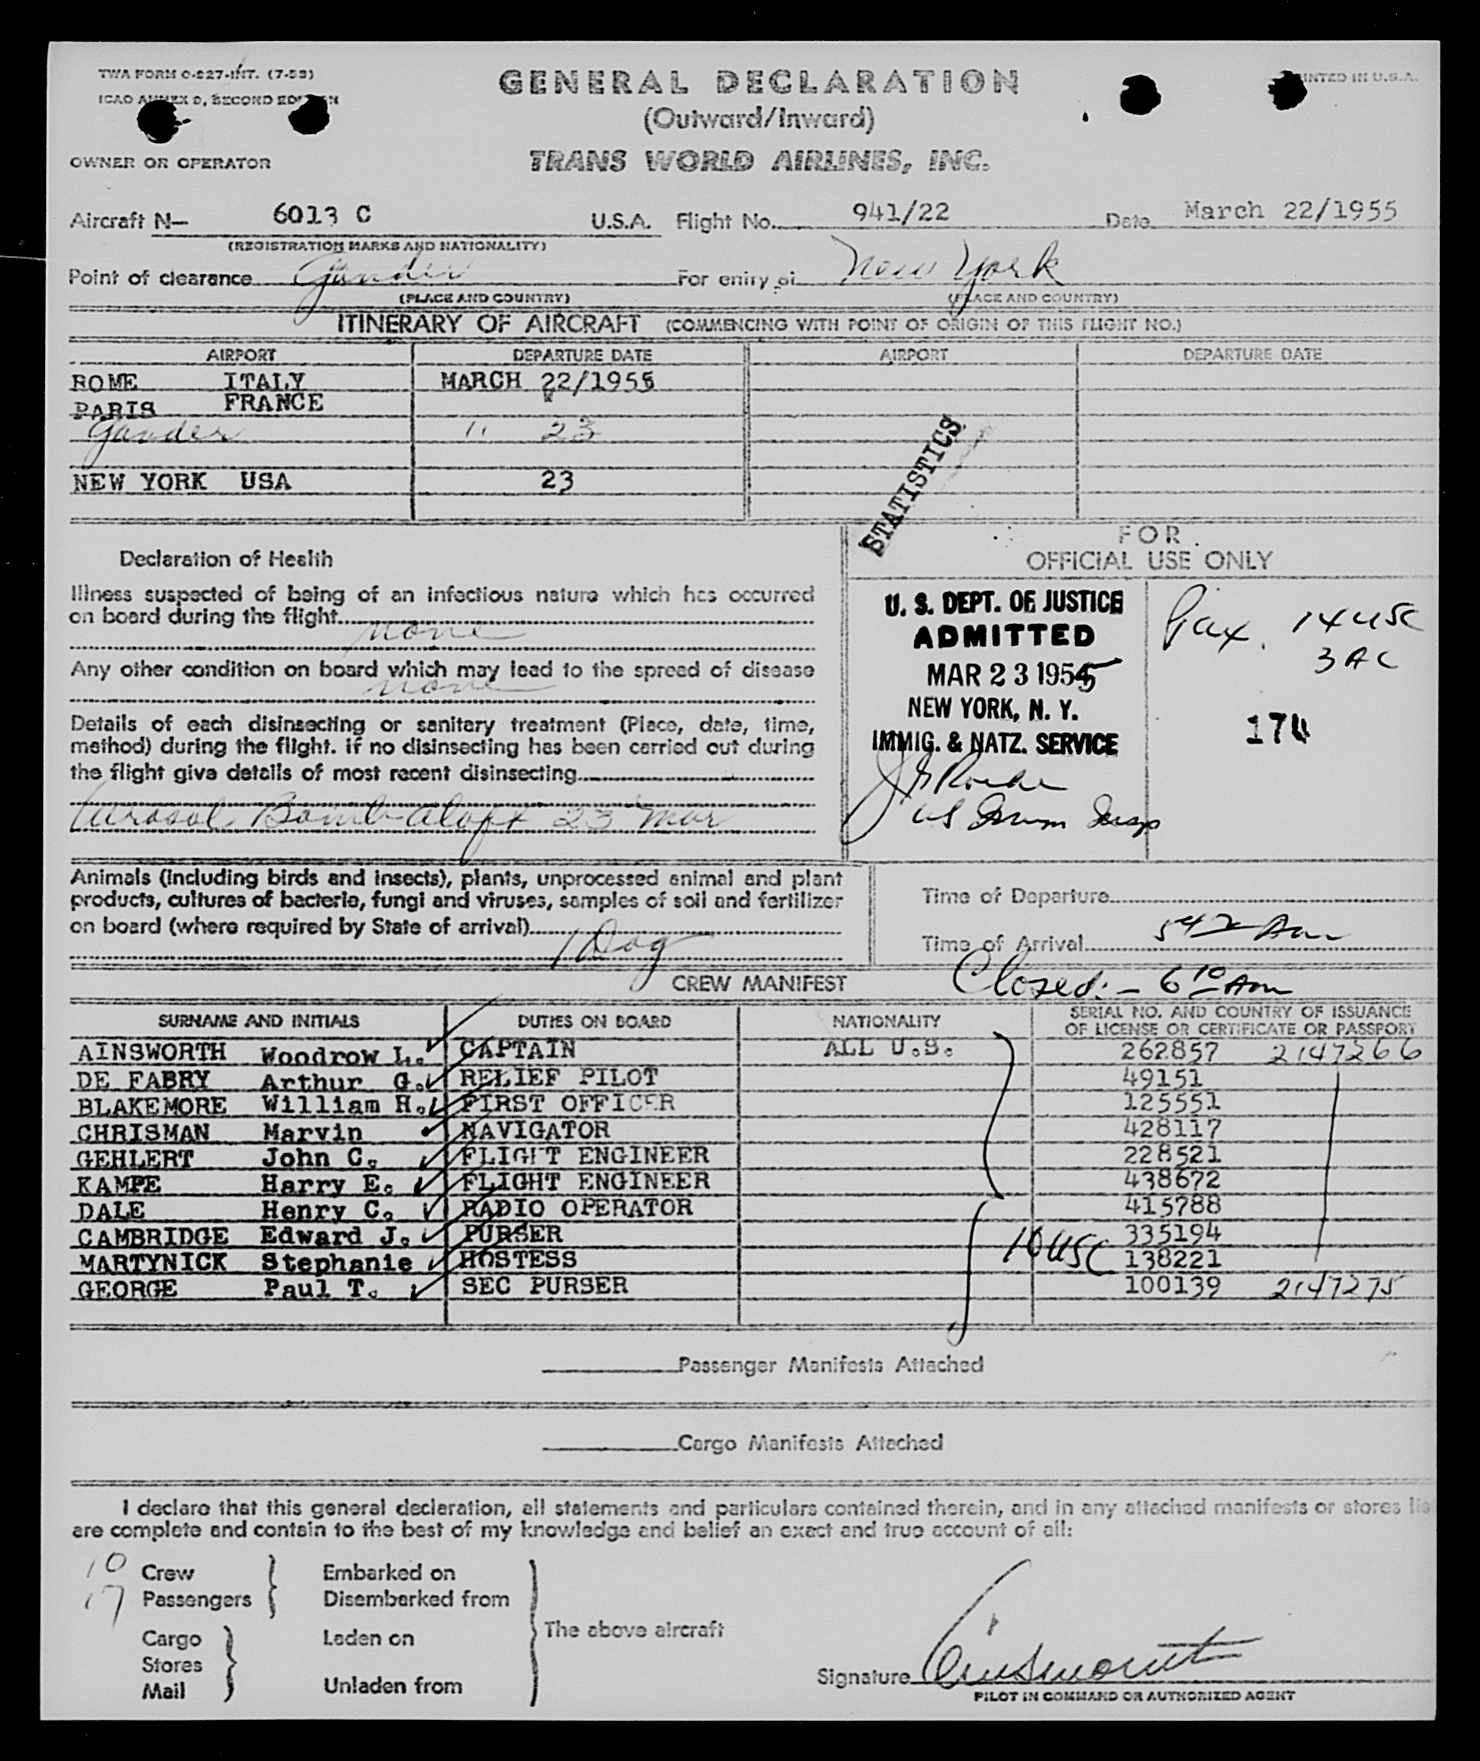 TWA FORM O-827-INT. (7-53)
GENERAL DECLARATION
PRINTED IN U.S.A.
ICAO ANNEX 9, SECOND EDITION
(Outward/Inward)
OWNER OR OPERATOR
TRANS WORLD AIRLINES, INC.
Aircraft N— 6013 C U.S.A. Flight No. 941/22 Date March 22/1955
(REGISTRATION MARKS AND NATIONALITY)
Point of clearance Gander For entry at New York
(PLACE AND COUNTRY) (PLACE AND COUNTRY)
ITINERARY OF AIRCRAFT (COMMENCING WITH POINT OF ORIGIN OF THIS FLIGHT NO.)
AIRPORT DEPARTURE DATE AIRPORT DEPARTURE DATE
ROME ITALY MARCH 22/1955
PARIS FRANCE "
Gander " 23
NEW YORK USA 23
STATISTICS
FOR
OFFICIAL USE ONLY
Declaration of Health
Illness suspected of being of an infectious nature which has occurred
on board during the flight none
Any other condition on board which may lead to the spread of disease
none
Details of each disinsecting or sanitary treatment (Place, date, time,
method) during the flight. If no disinsecting has been carried out during
the flight give details of most recent disinsecting
Aerosol Bomb aloft 23 Mar
U. S. DEPT. OF JUSTICE
ADMITTED
MAR 23 1955
NEW YORK, N. Y.
IMMIG. & NATZ. SERVICE
US Immn Insp
14 USC
3 AC
170
Animals (including birds and insects), plants, unprocessed animal and plant
products, cultures of bacteria, fungi and viruses, samples of soil and fertilizer
on board (where required by State of arrival) 1 Dog
Time of Departure
Time of Arrival 542 Am
Closed:- 610 Am
CREW MANIFEST
SURNAME AND INITIALS DUTIES ON BOARD NATIONALITY SERIAL NO. AND COUNTRY OF ISSUANCE
OF LICENSE OR CERTIFICATE OR PASSPORT
AINSWORTH Woodrow L. CAPTAIN ALL U.S. 262857 2147266
DE FABRY Arthur G. RELIEF PILOT 49151
BLAKEMORE William H. FIRST OFFICER 125551
CHRISMAN Marvin NAVIGATOR 428117
GEHLERT John C. FLIGHT ENGINEER 228521
KAMPE Harry E. FLIGHT ENGINEER 438672
DALE Henry C. RADIO OPERATOR 415788
CAMBRIDGE Edward J. PURSER 335194
MARTYNICK Stephanie HOSTESS 10 USC 138221
GEORGE Paul T. SEC PURSER 100139 2147275
Passenger Manifests Attached
Cargo Manifests Attached
I declare that this general declaration, all statements and particulars contained therein, and in any attached manifests or stores lis
are complete and contain to the best of my knowledge and belief an exact and true account of all:
10 Crew Embarked on
17 Passengers Disembarked from
The above aircraft
Cargo Laden on
Stores
Mail Unladen from
Signature Ainsworth
PILOT IN COMMAND OR AUTHORIZED AGENT